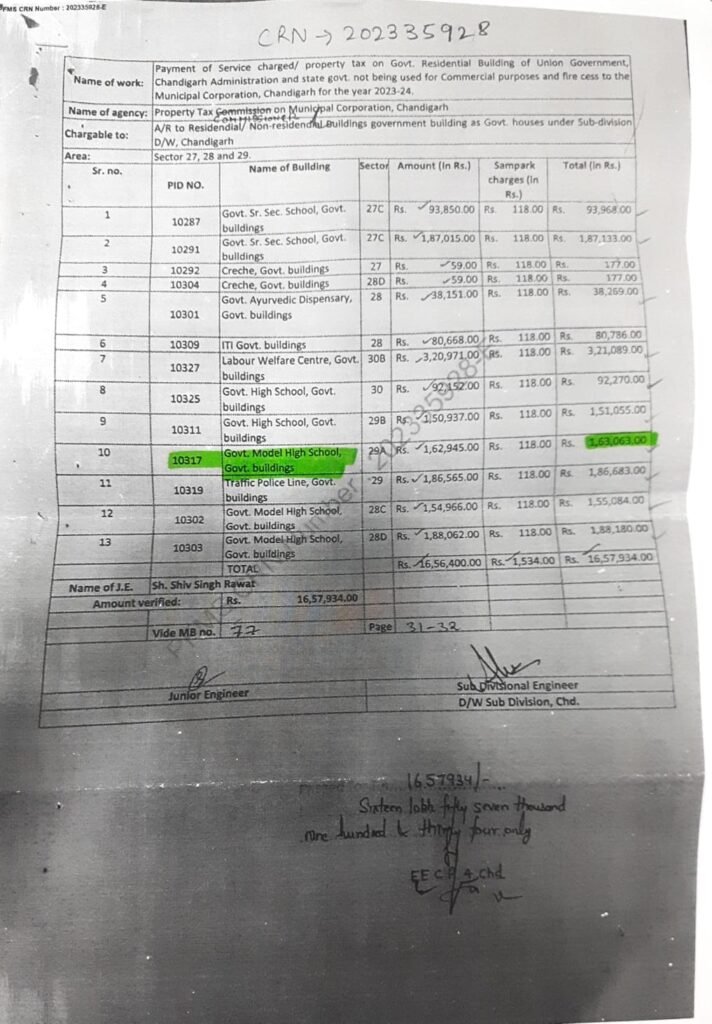 PFMS CRN Number : 202335928-E
CRN → 202335928
Name of work: Payment of Service charged/ property tax on Govt. Residential Building of Union Government,
Chandigarh Administration and state govt. not being used for Commercial purposes and fire cess to the
Municipal Corporation, Chandigarh for the year 2023-24.
Name of agency: Property Tax Commission on Municipal Corporation, Chandigarh
Commissioner
Chargable to: A/R to Residendial/ Non-residendial Buildings government building as Govt. houses under Sub-division
D/W, Chandigarh
Area: Sector 27, 28 and 29.
Sr. no. PID NO. Name of Building Sector Amount (In Rs.) Sampark charges (In Rs.) Total (In Rs.)
1 10287 Govt. Sr. Sec. School, Govt. buildings 27C Rs. 93,850.00 Rs. 118.00 Rs. 93,968.00
2 10291 Govt. Sr. Sec. School, Govt. buildings 27C Rs. 1,87,015.00 Rs. 118.00 Rs. 1,87,133.00
3 10292 Creche, Govt. buildings 27 Rs. 59.00 Rs. 118.00 Rs. 177.00
4 10304 Creche, Govt. buildings 28D Rs. 59.00 Rs. 118.00 Rs. 177.00
5 10301 Govt. Ayurvedic Dispensary, Govt. buildings 28 Rs. 38,151.00 Rs. 118.00 Rs. 38,269.00
6 10309 ITI Govt. buildings 28 Rs. 80,668.00 Rs. 118.00 Rs. 80,786.00
7 10327 Labour Welfare Centre, Govt. buildings 30B Rs. 3,20,971.00 Rs. 118.00 Rs. 3,21,089.00
8 10325 Govt. High School, Govt. buildings 30 Rs. 92,152.00 Rs. 118.00 Rs. 92,270.00
9 10311 Govt. High School, Govt. buildings 29B Rs. 1,50,937.00 Rs. 118.00 Rs. 1,51,055.00
10 10317 Govt. Model High School, Govt. buildings 29A Rs. 1,62,945.00 Rs. 118.00 Rs. 1,63,063.00
11 10319 Traffic Police Line, Govt. buildings 29 Rs. 1,86,565.00 Rs. 118.00 Rs. 1,86,683.00
12 10302 Govt. Model High School, Govt. buildings 28C Rs. 1,54,966.00 Rs. 118.00 Rs. 1,55,084.00
13 10303 Govt. Model High School, Govt. buildings 28D Rs. 1,88,062.00 Rs. 118.00 Rs. 1,88,180.00
TOTAL Rs. 16,56,400.00 Rs. 1,534.00 Rs. 16,57,934.00
Name of J.E. Sh. Shiv Singh Rawat
Amount verified: Rs. 16,57,934.00
Vide MB no. 77 Page 31-32
Junior Engineer
Sub Divisional Engineer
D/W Sub Division, Chd.
1657934/-
Sixteen lakh fifty seven thousand
nine hundred & thirty four only